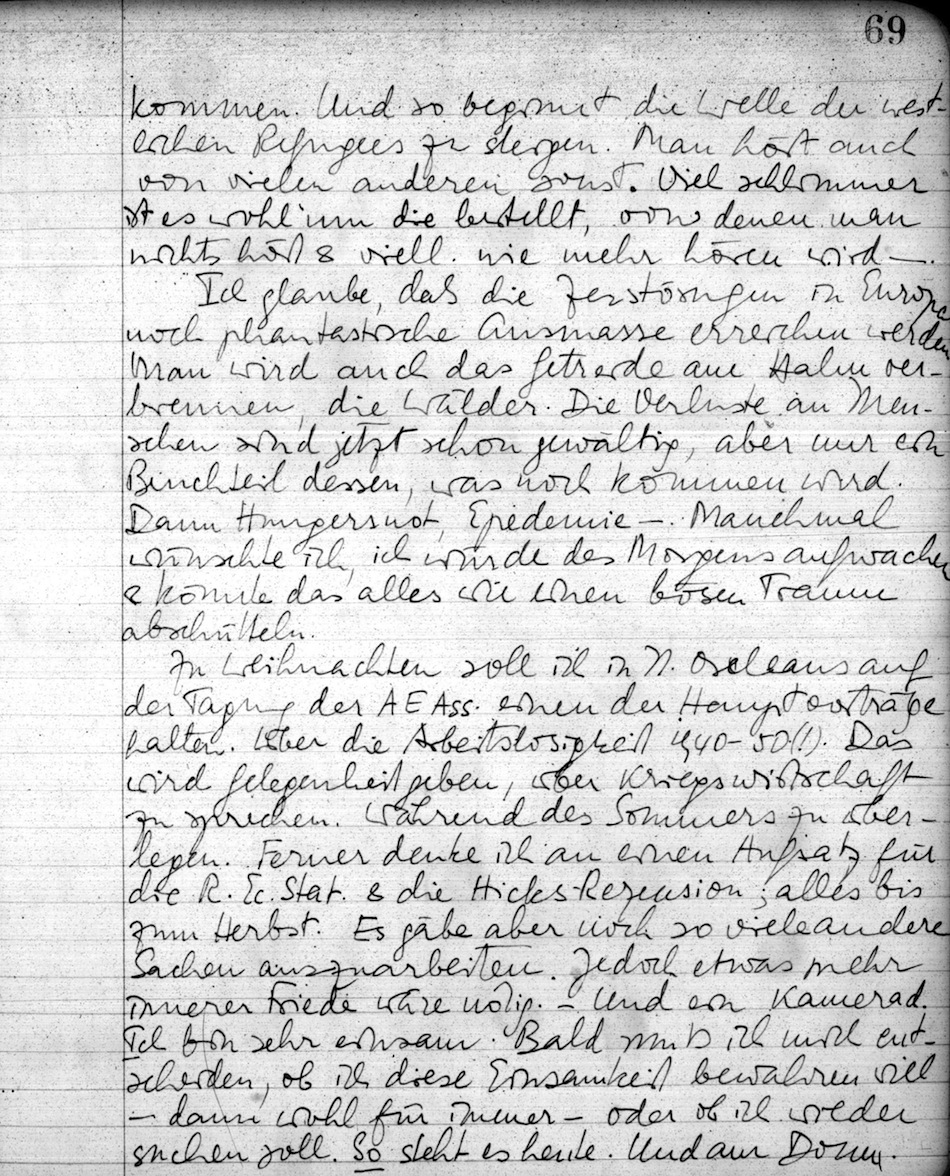 69
kommen. Und so beginnt die Welle der west-
lichen Refugees zu steigen. Man hört auch
von vielen anderen sonst. Viel schlimmer
ist es wohl um die bestellt, von denen man
nichts hört & viell. nie mehr hören wird —.
Ich glaube, daß die Zerstörungen in Europa
noch phantastische Ausmasse erreichen werden
Man wird auch das Getreide am Halm ver-
brennen, die Wälder. Die Verluste an Men-
schen sind jetzt schon gewaltig, aber nur ein
Bruchteil dessen, was noch kommen wird.
Dann Hungersnot, Epidemie —. Manchmal
wünschte ich, ich würde des Morgens aufwachen
& könnte das alles wie einen bösen Traum
abschütteln.
Zu Weihnachten soll ich in N. Orleans auf
der Tagung der AEAss. einen der Hauptvorträge
halten. Über die Arbeitslosigkeit 1940-50(!). Das
wird Gelegenheit geben, über Kriegswirtschaft
zu sprechen. Während des Sommers zu über-
legen. Ferner denke ich an einen Aufsatz für
die R. Ec. Stat. & die Hicks-Rezension; alles bis
zum Herbst. Es gäbe aber noch so viele andere
Sachen auszuarbeiten. Jedoch etwas mehr
innerer Friede wäre nötig. – Und ein Kamerad.
Ich bin sehr einsam. Bald muß ich mich ent-
scheiden, ob ich diese Einsamkeit bewahren will
– dann wohl für immer – oder ob ich wieder
suchen soll. So steht es heute. Und am Donn.